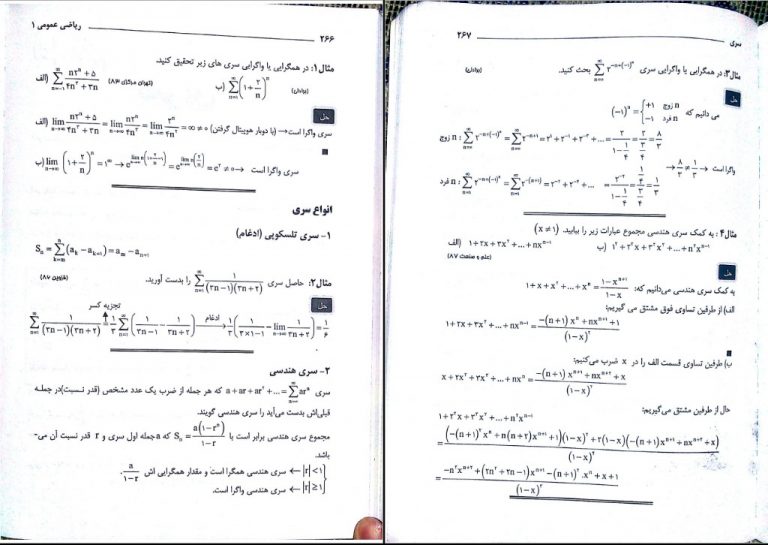 ریاضی عمومی ۱
۲۶۶
مثال۱: در همگرایی یا واگرایی سری های زیر تحقیق کنید.
الف) $\sum_{n=1}^{\infty} \frac{n۲^n + ۵}{۴n^۲ + ۳n}$ (تهران مرکزی ۸۴) ب) $\sum_{n=1}^{\infty} \left(۱+\frac{۲}{n}\right)^n$
حل
الف) $\lim_{n\to\infty} \frac{n۲^n + ۵}{۴n^۲ + ۳n} = \lim_{n\to\infty} \frac{n۲^n}{۴n^۲} = \lim_{n\to\infty} \frac{۲^n}{۴n} = \infty \neq ۰$ (با دوبار هوپیتال گرفتن) → سری واگرا است
ب) $\lim_{n\to\infty} \left(۱+\frac{۲}{n}\right)^n = ۱^\infty \to$ $= e^۲ \neq ۰ \to$ سری واگرا است
انواع سری
۱- سری تلسکوپی (ادغام)
$S_n = \sum_{k=m}^{n} (a_k - a_{k+1}) = a_m - a_{n+1}$
مثال۲: حاصل سری $\sum_{n=1}^{\infty} \frac{۱}{(۳n-۱)(۳n+۲)}$ را بدست آورید. (قزوین ۸۷)
حل
تجزیه کسر
$\sum_{n=1}^{\infty} \frac{۱}{(۳n-۱)(۳n+۲)} = \frac{۱}{۳} \sum_{n=1}^{\infty} \left(\frac{۱}{۳n-۱} - \frac{۱}{۳n+۲}\right)$ ادغام → $\frac{۱}{۳}\left(\frac{۱}{۳×۱-۱} - \lim_{n\to\infty} \frac{۱}{۳n+۲}\right) = \frac{۱}{۶}$
۲- سری هندسی
سری $a + ar + ar^۲ + ... = \sum_{n=۰}^{\infty} ar^n$ که هر جمله از ضرب یک عدد مشخص (قدر نسبت)در جمله
قبلی‌اش بدست می‌آید را سری هندسی گویند.
مجموع سری هندسی برابر است با $S_n = \frac{a(۱-r^n)}{۱-r}$ که a جمله اول سری و r قدر نسبت آن می-
باشد.
$|r| < ۱$ ← سری هندسی همگرا است و مقدار همگرایی اش $\frac{a}{۱-r}$.
$|r| \geq ۱$ ← سری هندسی واگرا است.
سری
۲۶۷
مثال۳: در همگرایی یا واگرایی سری $\sum_{n=۰}^{\infty} ۲^{-n+(-۱)^n}$ بحث کنید.
حل
می دانیم که $(-۱)^n = \begin{cases} +۱ & n \text{ زوج} \\ -۱ & n \text{ فرد} \end{cases}$
n زوج : $\sum_{n=۰}^{\infty} ۲^{-n+(-۱)^n} = \sum_{n=۰}^{\infty} ۲^{-n+۱} = ۲^۱ + ۲^{-۱} + ۲^{-۳} + ... = \frac{۲}{۱-\frac{۱}{۴}} = \frac{۲}{\frac{۳}{۴}} = \frac{۸}{۳}$
n فرد : $\sum_{n=۰}^{\infty} ۲^{-n+(-۱)^n} = \sum_{n=۱}^{\infty} ۲^{-(n+۱)} = ۲^{-۲} + ۲^{-۴} + ... = \frac{۲^{-۲}}{۱-\frac{۱}{۴}} = \frac{\frac{۱}{۴}}{\frac{۳}{۴}} = \frac{۱}{۳}$ → $\frac{۸}{۳} \neq \frac{۱}{۳}$ → واگرا است
مثال۴ : به کمک سری هندسی مجموع عبارات زیر را بیابید. $(x \neq ۱)$
الف) $۱ + ۲x + ۳x^۲ + ... + nx^{n-۱}$ ب) $۱^۲ + ۲^۲x + ۳^۲x^۲ + ... + n^۲x^{n-۱}$
(علم و صنعت ۸۷)
حل
به کمک سری هندسی می‌دانیم که: $۱ + x + x^۲ + ... + x^n = \frac{۱-x^{n+۱}}{۱-x}$
الف) از طرفین تساوی فوق مشتق می گیریم:
$۱ + ۲x + ۳x^۲ + ... + nx^{n-۱} = \frac{-(n+۱)x^n + nx^{n+۱} + ۱}{(۱-x)^۲}$
ب) طرفین تساوی قسمت الف را در x ضرب می‌کنیم:
$x + ۲x^۲ + ۳x^۳ + ... + nx^n = \frac{-(n+۱)x^{n+۱} + nx^{n+۲} + x}{(۱-x)^۲}$
حال از طرفین مشتق می‌گیریم:
$۱ + ۲^۲x + ۳^۲x^۲ + ... + n^۲x^{n-۱}$
$= \frac{(-(n+۱)^۲x^n + n(n+۲)x^{n+۱} + ۱)(۱-x)^۲ + ۲(۱-x)(-(n+۱)x^{n+۱} + nx^{n+۲} + x)}{(۱-x)^۴}$
$= \frac{-n^۲x^{n+۲} + (۲n^۲ + ۲n - ۱)x^{n+۱} - (n+۱)^۲.x^n + x + ۱}{(۱-x)^۳}$